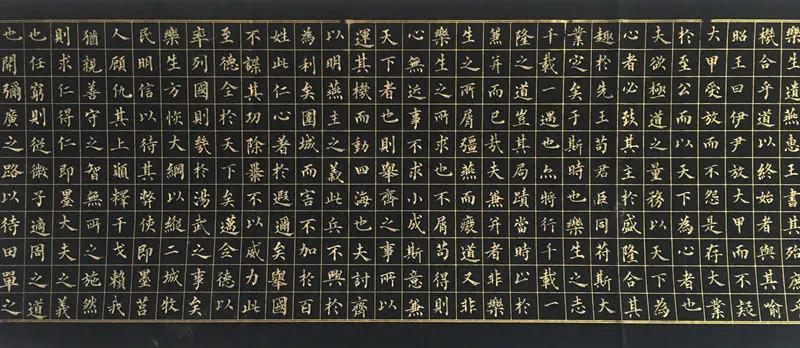 樂生遺燕惠王書其殆庶乎
機合乎道以終始者與其喻
昭王曰伊尹放大甲而不疑
大甲受放而不怨是存大業
於至公而以天下為心者也
夫欲極道之量務以天下為
心者必致其主於盛隆合其
趣於先王苟君臣同苻斯大
業定矣于斯時也樂生之志
千載一遇也亦將行千載一
隆之道豈其局蹟當時止於
蒹并而已哉夫蒹并者非樂
生之所屑彊燕而廢道又非
樂生之所求也不屑苟得則
心無近事不求小成斯意蒹
天下者也則舉齊之事所以
運其機而動四海也夫討齊
以明燕主之義此兵不興於
為利矣圍城而害不加於百
姓此仁心著於遐邇矣舉國
不謀其功除暴不以威力此
至德全於天下矣邁全德以
率列國則幾於湯武之事矣
樂生方恢大綱以縱二城牧
民明信以待其弊使即墨莒
人顧仇其上願釋干戈賴我
猶親善守之智無所之施然
則求仁得仁即墨大夫之義
也任窮則從微子適周之道
也開彌廣之路以待田單之